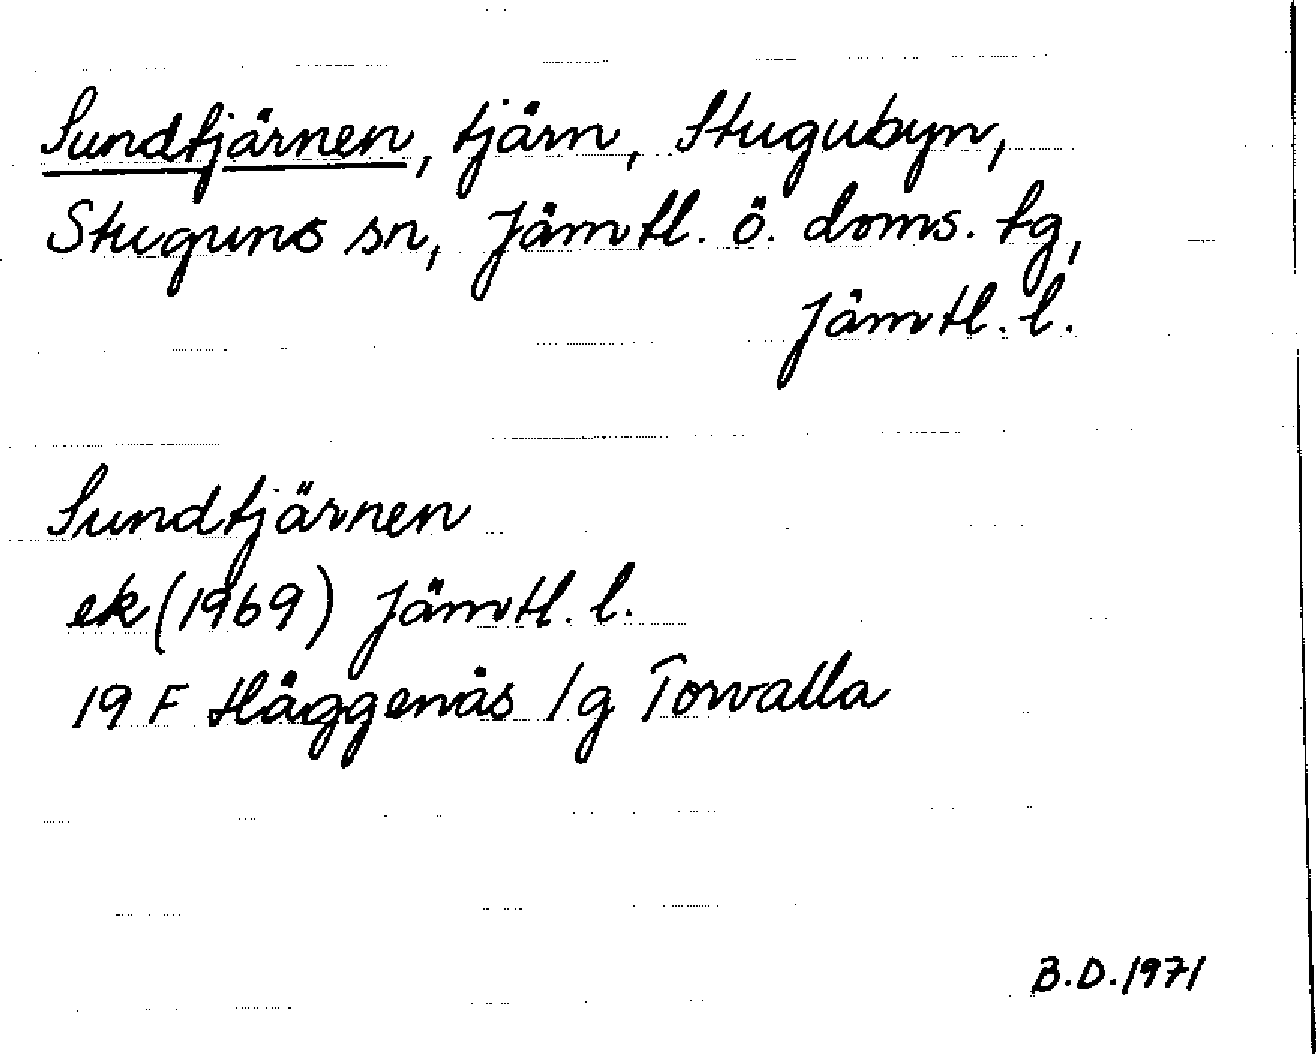 Sundtjärnen, tjärn, Stugubyn,
Stuguns sn, Jämtl. ö. doms. tg,
Jämtl. l.
Sundtjärnen
ek (1969) Jämtl. l.
19 F Häggenås /g Torvalla
B.D. 1971